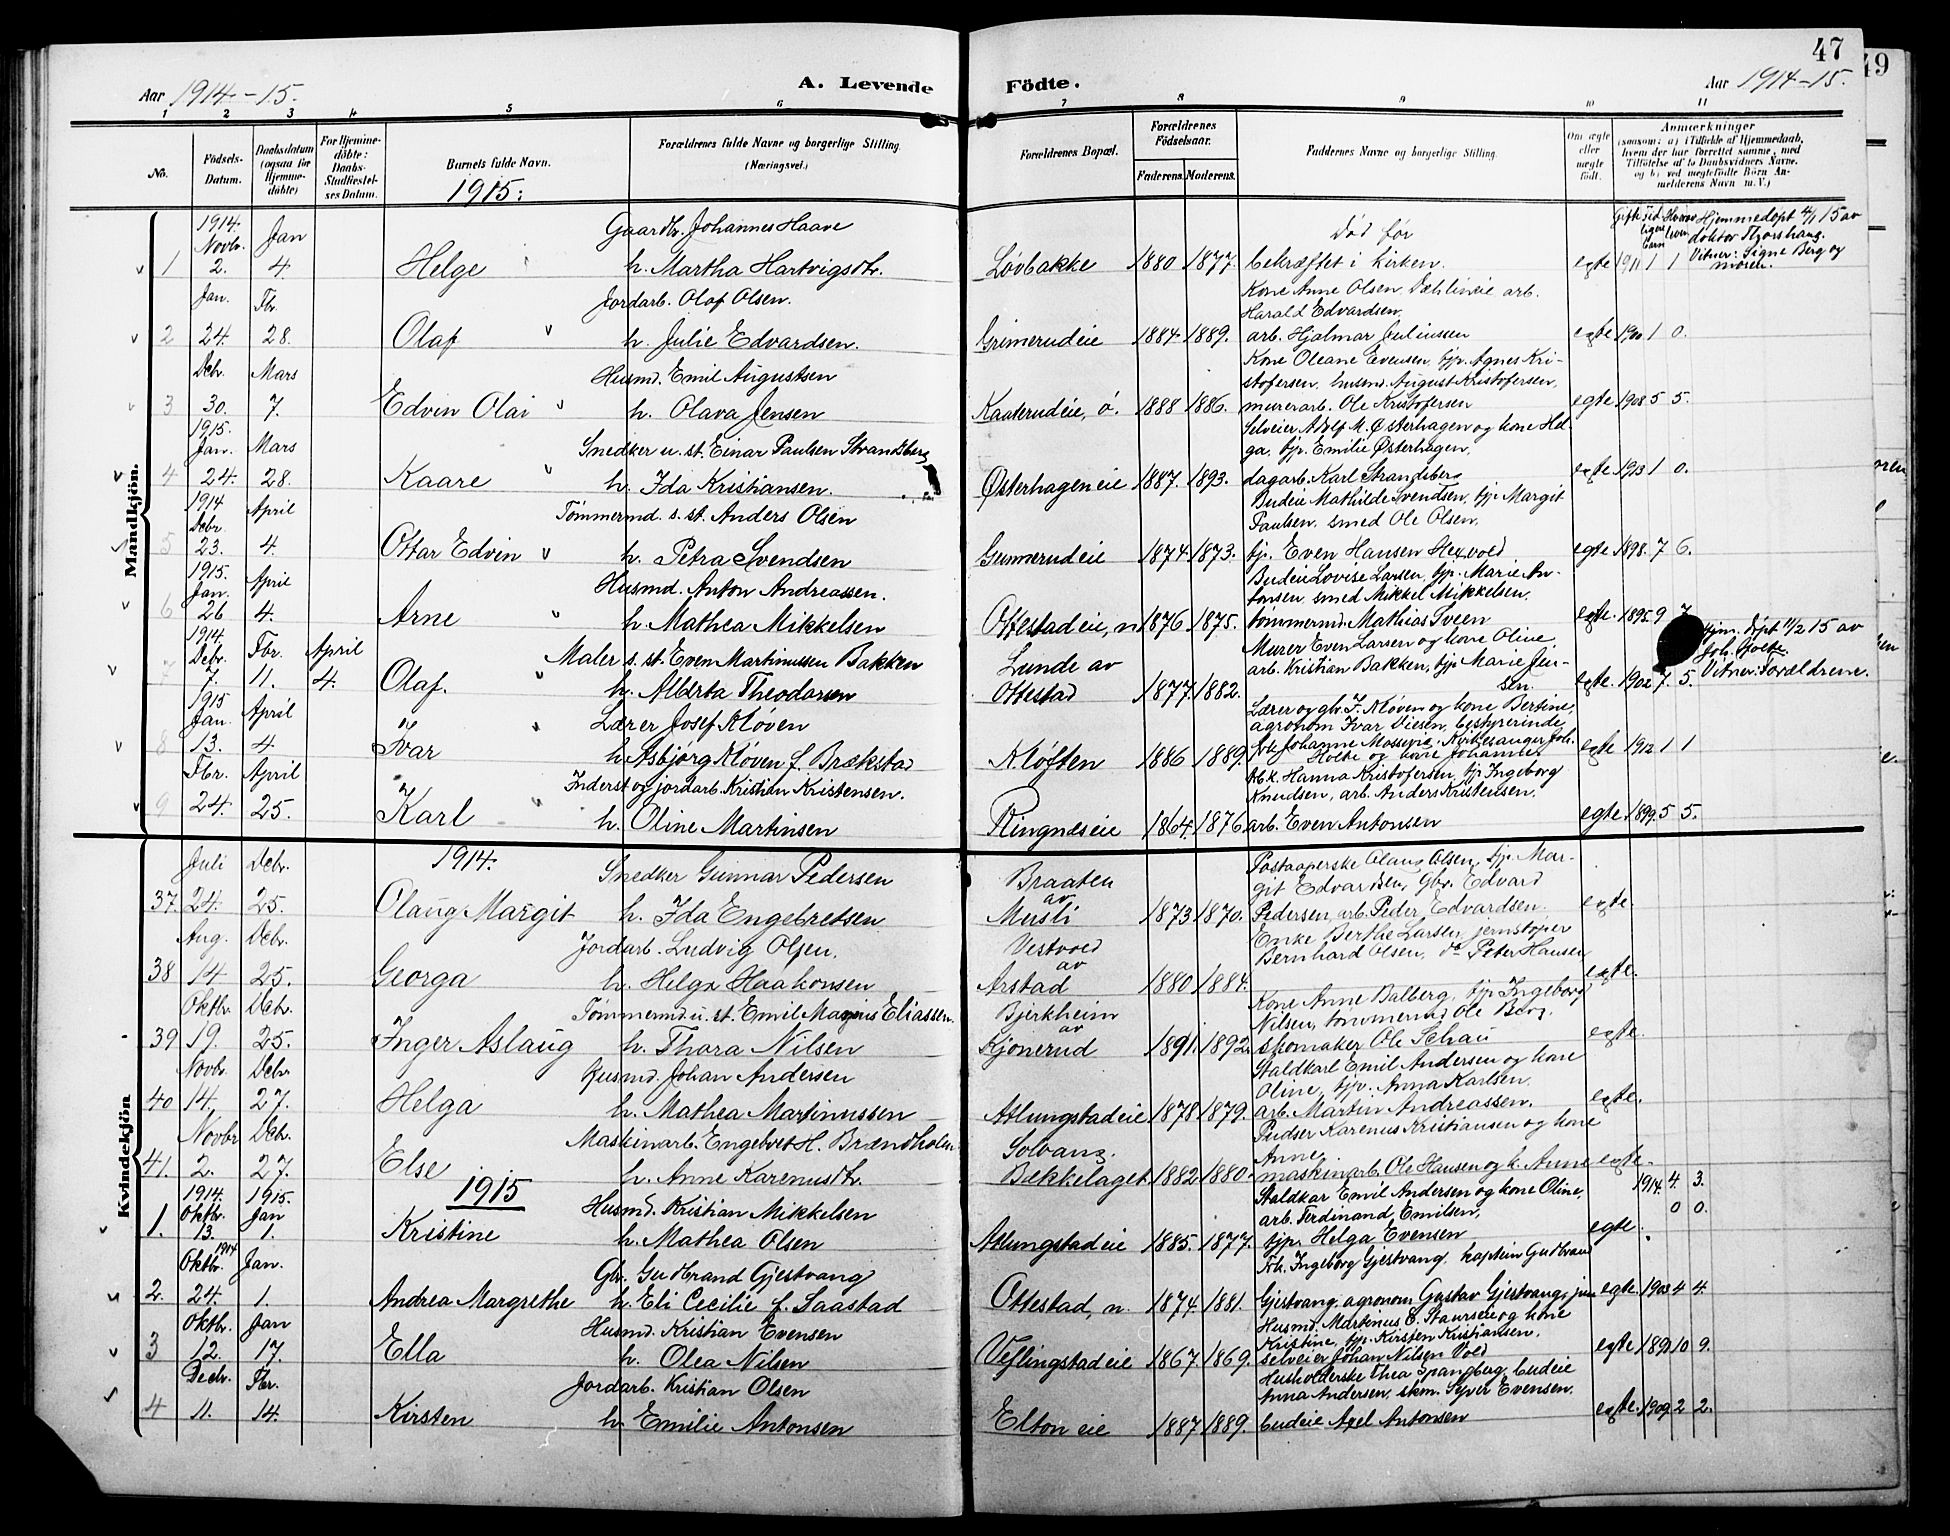 47
49
Aar 1914-15. A. Levende Födte. Aar 1914-15.
1 2 3 4 5 6 7 8 9 10 11
No. Födsels-Datum. Daabsdatum (ogsaa for Hjemmedöbte) For Hjemmedöbte: Daabs-Stadfæstelses Datum. Barnets fulde Navn. Forældrenes fulde Navne og borgerlige Stilling. (Næringsvei.) Forældrenes Bopæl. Forældrenes Födselsaar. Faderens. Moderens. Faddernes Navne og borgerlige Stilling. Om ægte eller uægte födt. Anmærkninger (saasom: a) i Tilfælde af Hjemmedaab, hvem der har forrettet samme, med Tilföielse af to Daabsvidners Navne, og b) ved uægtefödte Börn Anmelderens Navn m. V.)
1915:
Mandkjön.
1914. Novbr. Jan Gaardbr. Johannes Haave Død før Hjemmedøpt 4/1 15 av
1 2. 4. Helge h. Martha Hartvigsdtr. Løvbakke 1880 1877. bekræftet i kirken. egte 1911 1 1 Vitner: Signe Berg og moren.
Jan. Fbr. Jordarb. Olaf Olsen. Kone Anne Olsen Dæhlineie arb. Harald Edvardsen,
2 24. 28. Olaf h. Julie Edvardsen. Grimerudeie 1884. 1889. arb. Hjalmar Juliussen egte 1910 1 0.
Debr. Mars Husmd. Emil Augustsen Kone Oleane Evensen, tjp. Agnes Kristofersen, husmd. August Kristofersen,
3 30. 7. Edvin Olai h. Olava Jensen Kaaterudeie, ø. 1888 1886. murerarb. Ole Kristofersen egte 1908 5 5.
1915. Jan. Mars Snedker u. st. Einar Paulsen Strandsberg Selveier Adolf M. Østerhagen og kone Helga, tjp. Emilie Østerhagen,
4 24. 28. Kaare h. Ida Kristiansen. Østerhageneie 1887. 1893. dagarb. Karl Strandsberg egte 1913 1 0.
1914 Debr. April Tømmermd. s. st. Anders Olsen Budeie Mathilde Svendsen, tjp Margit Paulsen, smed Ole Olsen,
5 23. 4. Ottar Edvin h. Petra Svendsen Gunnerudeie 1874. 1873. tj. Even Hansen Hexvold egte 1898. 7 6.
1915. Jan. April Husmd. Anton Andreassen. Budeie Lovise Larsen, tjp. Marie Antonsen, smed Mikkel Mikkelsen,
6 26 4. Arne h. Mathea Mikkelsen Ottestadeie, n 1876 1875. tømmermd. Mathias Sveen egte. 1895 9 7
1914. Debr. Fbr. April Maler s. st. Even Martinussen Bakken Lunde av Murer Even Larsen og kone Oline Hjm. døpt 11/2 15 av Joh. Holte.
7 7. 11. 4. Olaf. h. Alberta Theodorsen Ottestad 1877. 1882. arb. Kristian Bakken, tjp Marie Jensen egte. 1902 7. 5. Vitner: Foraldrene.
1915 Jan. April Lærer Josef Kløven Lærer og gbr. J. Kløven og kone Bertine, agronom Ivar Viesen, bestyrerinde
8 13. 4 Ivar h. Asbjørg Kløven f. Brækstad Kløften 1886 1889. frk Johanne Mossevig, Kirkesanger Joh. Holte og kone Johanne egte 1912 1 1
Fbr. April Inderst og jordarb. Kristian Kristensen. frk. Hanna Kristofersen, tjp Ingeborg Knudsen, arb. Anders Kristensen,
9 24. 25. Karl h. Oline Martinsen Ringneseie 1864. 1876 arb. Even Antonsen egte. 1899. 5 5.
Kvindekjön
1914.
Juli Debr. Snedker Gunnar Pedersen Braaten av Postaaperske Olaug Olsen, tjp. Margit Edvardsen, Gbr. Edvard
37. 24. 25. Olaug Margit h. Ida Engebretsen Musli 1873. 1870. Pedersen, arb. Peder Edvardsen. egte.
Aug. Debr. Jordarb. Ludvig Olsen. Vestvold av Enke Berthe Larsen, jernstøper
38 14 25. Georga h. Helga Haakonsen Arstad 1880 1884. Bernhard Olsen, do Peter Hansen egte.
Oktbr. Debr. Tømmermd u. st. Emil Magnus Eliassen. Bjerkheim av Kone Anne Balberg, tjp Ingeborg Nilsen, tømmermd Ole Berg,
39 19. 25. Inger Aslaug h. Thora Nilsen Kjonerud 1891. 1892. skomaker Ole Schau egte.
Novbr. Debr Husmd. Johan Andersen Staldkarl Emil Andersen og kone Oline, tjp. Anna Karlsen,
40 14. 27. Helga h. Mathea Martinussen Atlungstadeie 1878 1879. arb. Martin Andreassen. egte.
Novbr Debr. Maskinarb. Engebret H. Brændholen Solvang, Pudser Karenus Kristiansen og kone Anne,
41. 2. 27. Else h. Anne Karenusdtr. Bækkelaget 1882 1880. maskinarb. Ole Hansen og k. Anne egte.
1915
1914. Oktbr. 1915. Jan Husmd. Kristian Mikkelsen Staldkar Emil Andersen og kone Oline, arb. Ferdinand Emilsen, 1914. 4. 3. 0 0.
1. 13. 1. Kristine h. Mathea Olsen Atlungstadeie 1885. 1877. tjp. Helga Evensen egte.
Oktbr. 1914 Jan. Gbr. Gudbrand Gjestvang Frk. Ingeborg Gjestvang, kaptein Gudbrand
2. 24. 1. Andrea Margrethe h. Eli Cecilie f. Saastad Ottestad, n. 1874. 1881. Gjestvang, agronom Gustav Gjestvang, jun egte. 1903 4 4.
Oktbr. Jan Husmd. Kristian Evensen Husmd. Martinus E. Staurseie og kone Kristine, tjp. Kirsten Kristiansen,
3 12. 17. Ella h. Olea Nilsen Veflingstadeie 1867. 1869. selveier Johan Nilsen Vold egte 1890 10 9.
Decbr. Fbr. Jordarb. Kristian Olsen Husholderske Thea Spangberg, budeie Anna Andersen, skom. Syver Evensen,
4 11. 14. Kirsten h. Emilie Antonsen Elton eie 1887 1889. budeie Axel Antonsen egte. 1909. 2 2.